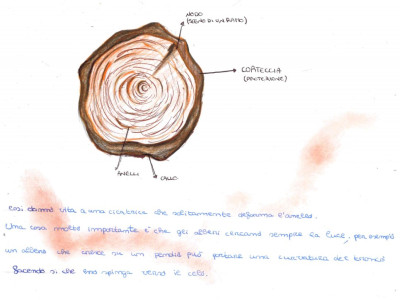 NODO
(SEGNO DI UN RAMO)
CORTECCIA
(PROTEZIONE)
ANELLI
CALLO
così danno vita a una cicatrice che solitamente deforma l'anello.
Una cosa molto importante è che gli alberi cercano sempre la luce, per esempio
un albero che cresce su un pendio può portare una curvatura del tronco
facendo sì che spinga verso il cielo.